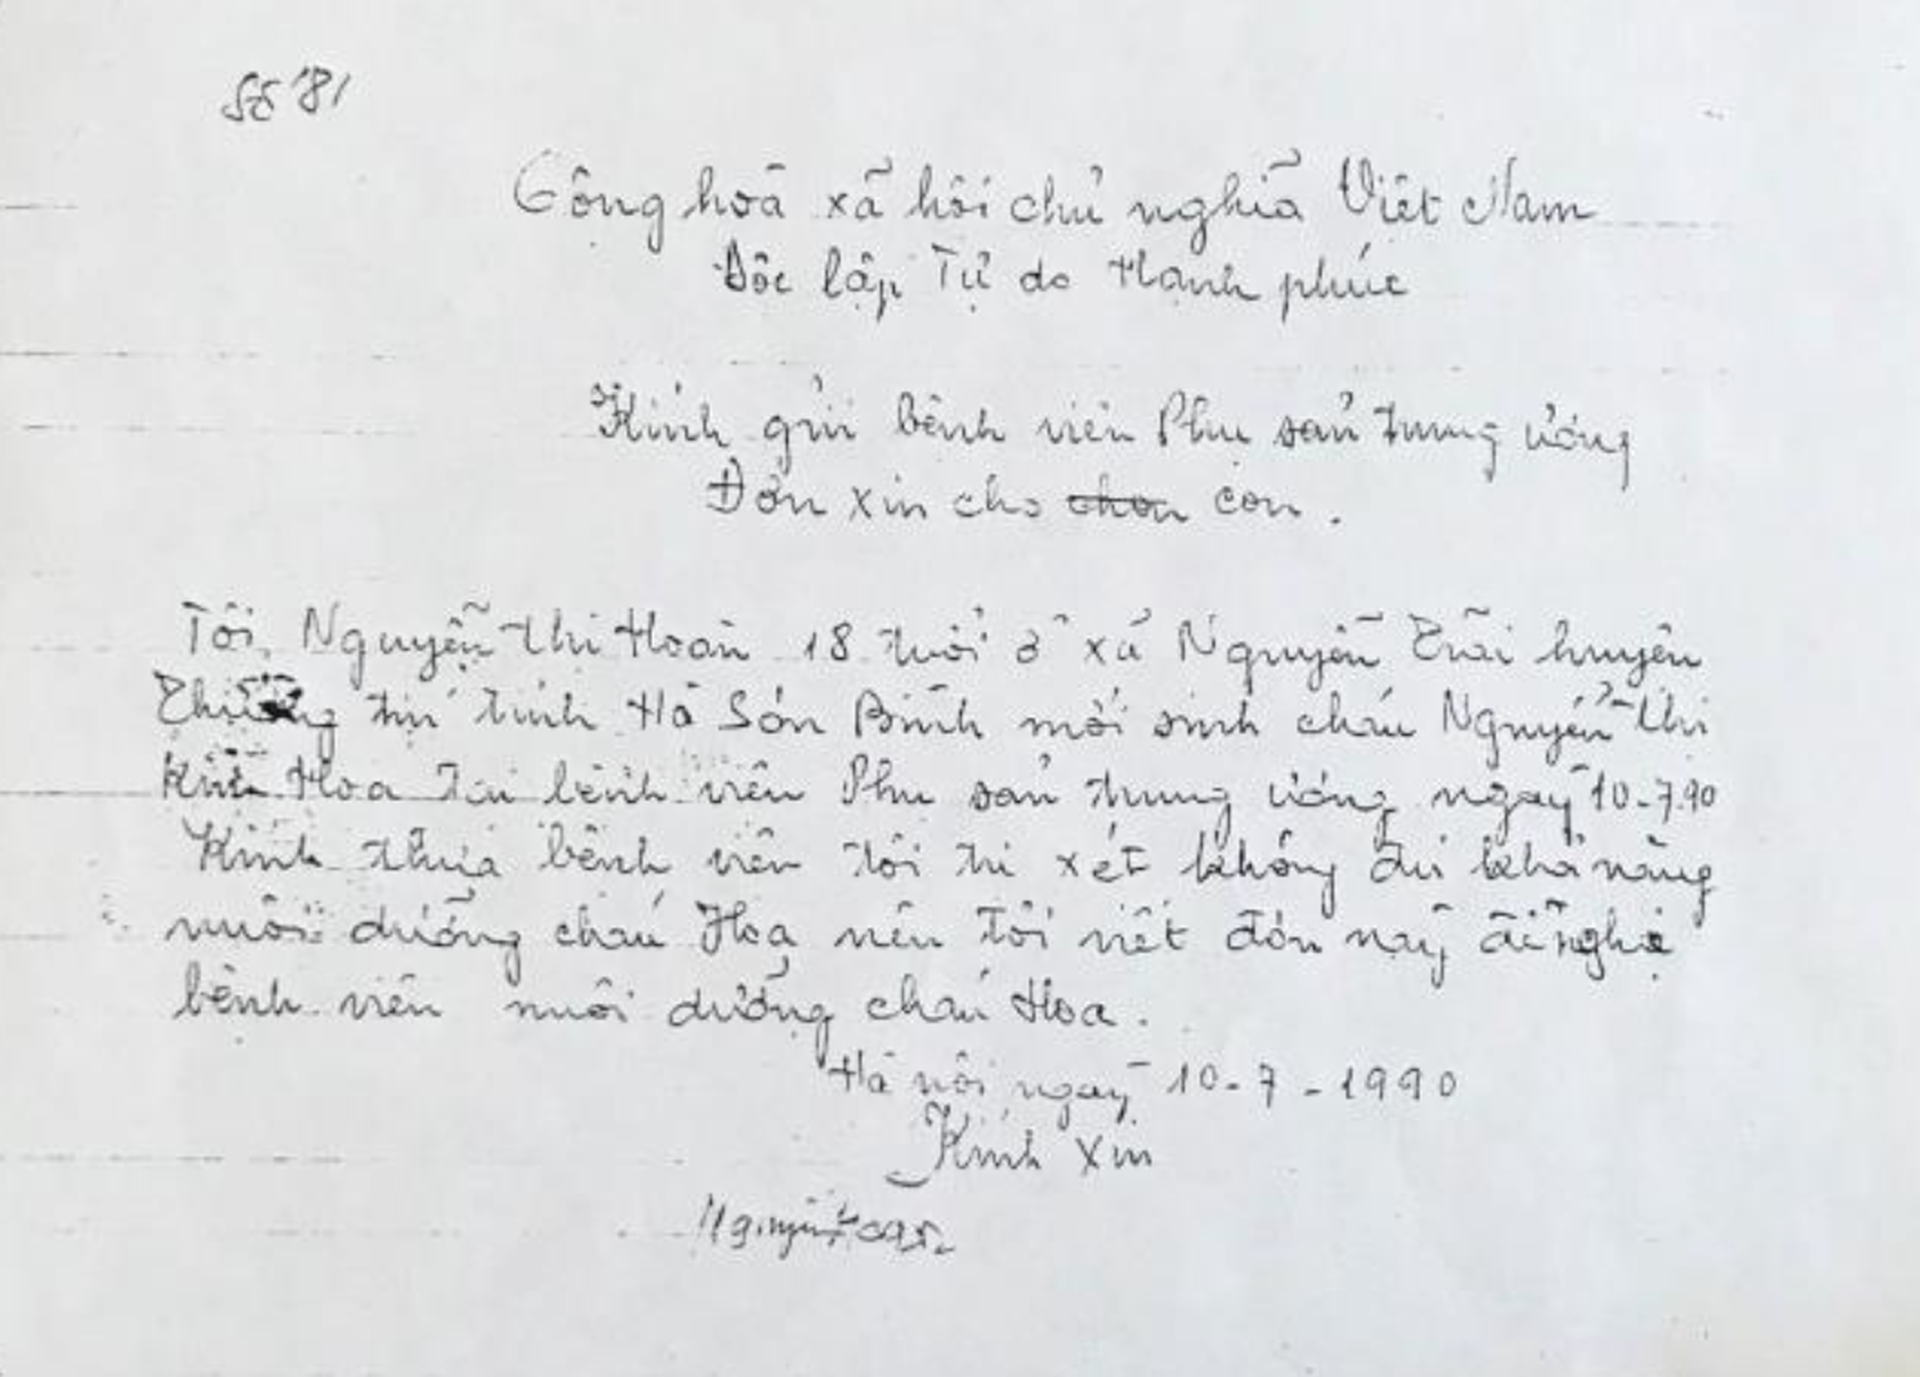 Số 81
Cộng hoà xã hôi chủ nghĩa Việt Nam
Đôc lập Tự do Hạnh phúc
Kính gửi bênh viên Phu sản trung ương
Đơn xin cho chon con.
Tôi, Nguyễn Thi Hoan 18 tuổi ở xã Nguyễn Trãi huyên
Thường tín tỉnh Hà Sơn Bình mới sinh cháu Nguyễn Thi
Hoa tai bênh viên Phu sản trung ương ngày 10-7-90
Kính thưa bênh viên tôi tư xét không đủ khả năng
nuôi dưỡng cháu Hoa nên tôi viết đơn này đề nghị
bệnh viên nuôi dưỡng cháu Hoa.
Hà nôi ngày 10-7-1990
Kính xin